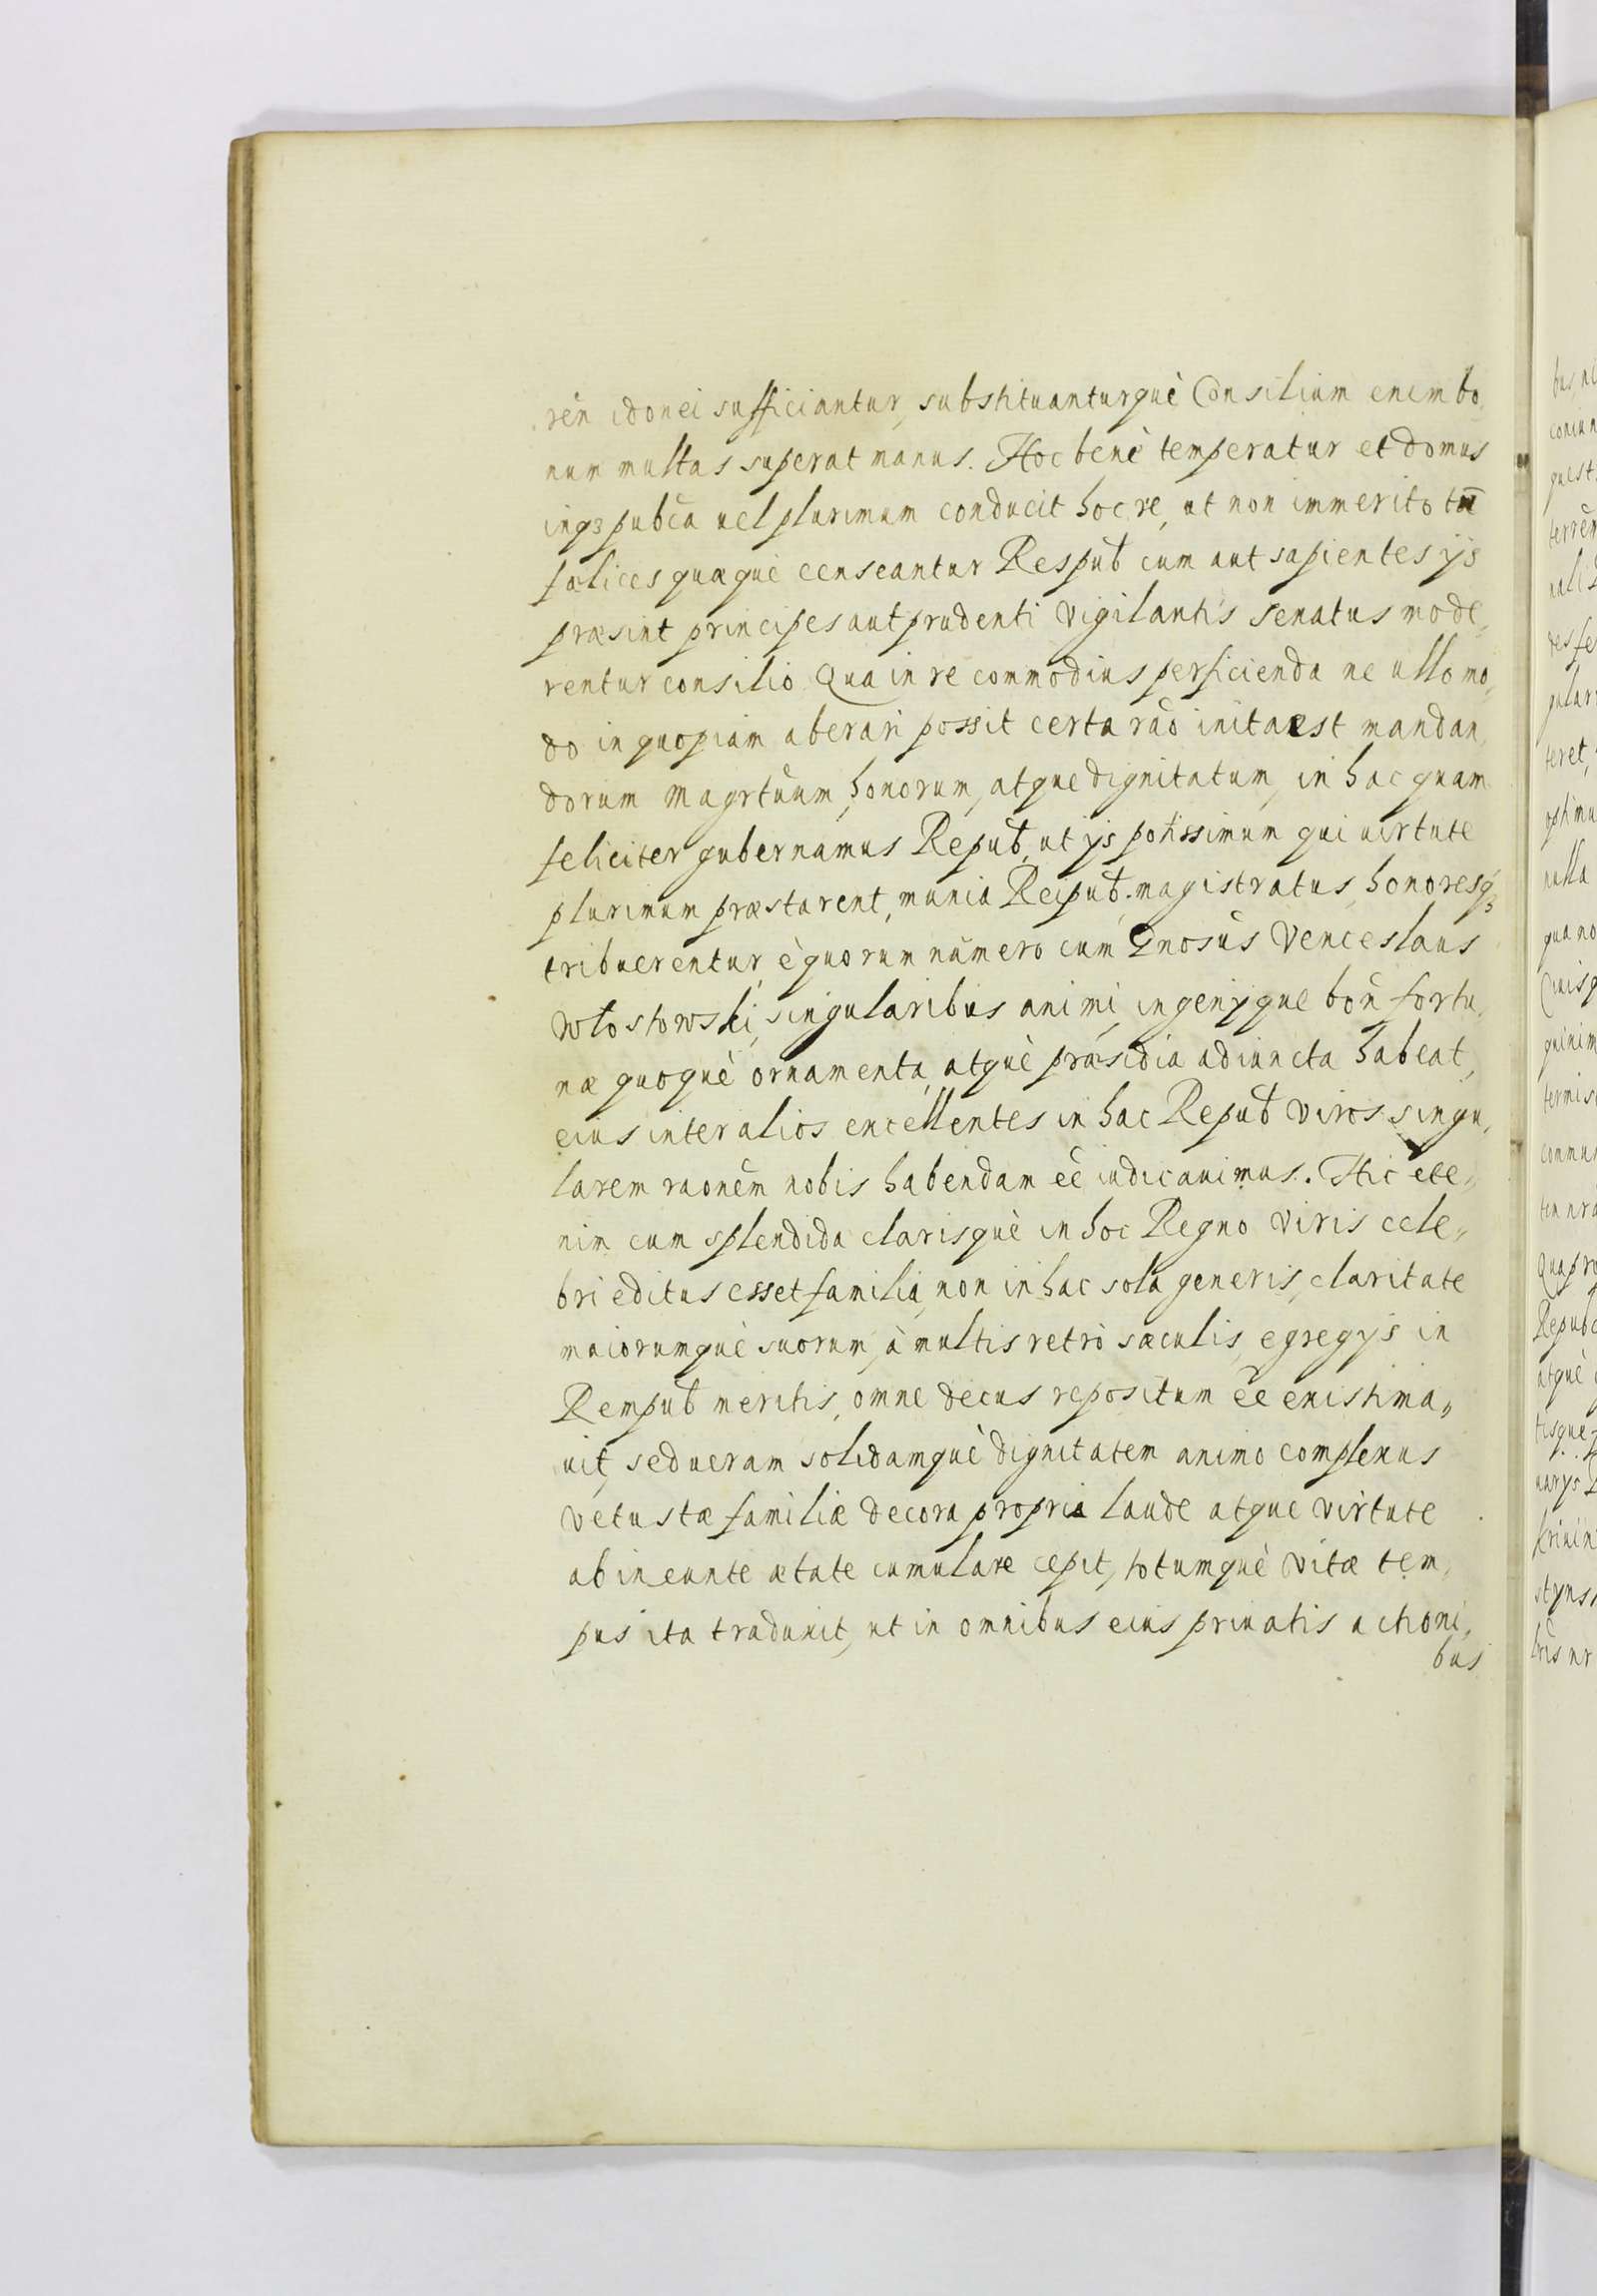 rēn idonei sufficiantur, substituanturquè Consilium enim bo,
num multas superat manus. Hoc benè temperatur et domus
inqȝ pubĉa uel plurimum conducit hoc re, ut non immerito tū
fælices quæquè censeantur Respub̄ cum aut sapientes ijs
præsint principes aut prudenti vigilantis senatus mode,,
rentur consilio Qua in re commodius perficienda ne ullo mo,
do in quopiam aberari possit certa rãó inita est mandan,
dorum magrtũum, honorum, atque dignitatum, in hac quam
feliciter gubernamus Repub̄, ut ijs potissimum qui uirtute
plurimum præstarent, munia Reipub̄. magistratus, honoresqȝ
tribuerentur, è quorum numero cum Gnosũs Venceslaus
Włostowski, singularibus animi, ingenijque bon̄ fortu,
næ quoquè ornamenta, atquè præsidia adiuncta habeat,
eius inter alios excellentes in hac Repub̄ viros singu,
larem raonẽm nobis habendam ẽe iudicauimus. Hic ete,,
nim cum splendida clarisquè in hoc Regno viris cele,,
bri editus esset familia, non in hac sola generis, claritate
maiorumquè suorum, à multis retrò sæculis, egregijs in
Rempub̄ meritis, omne decus repositum ẽe existima,,
uit, sed ueram solidamquè dignitatem animo complexus
vetustæ familiæ decora propria laude atque virtute
ab ineunte ætate cumulare cepit, totumquè vitæ tem,
pus ita traduxit, ut in omnibus eius priuatis actioni,
bus